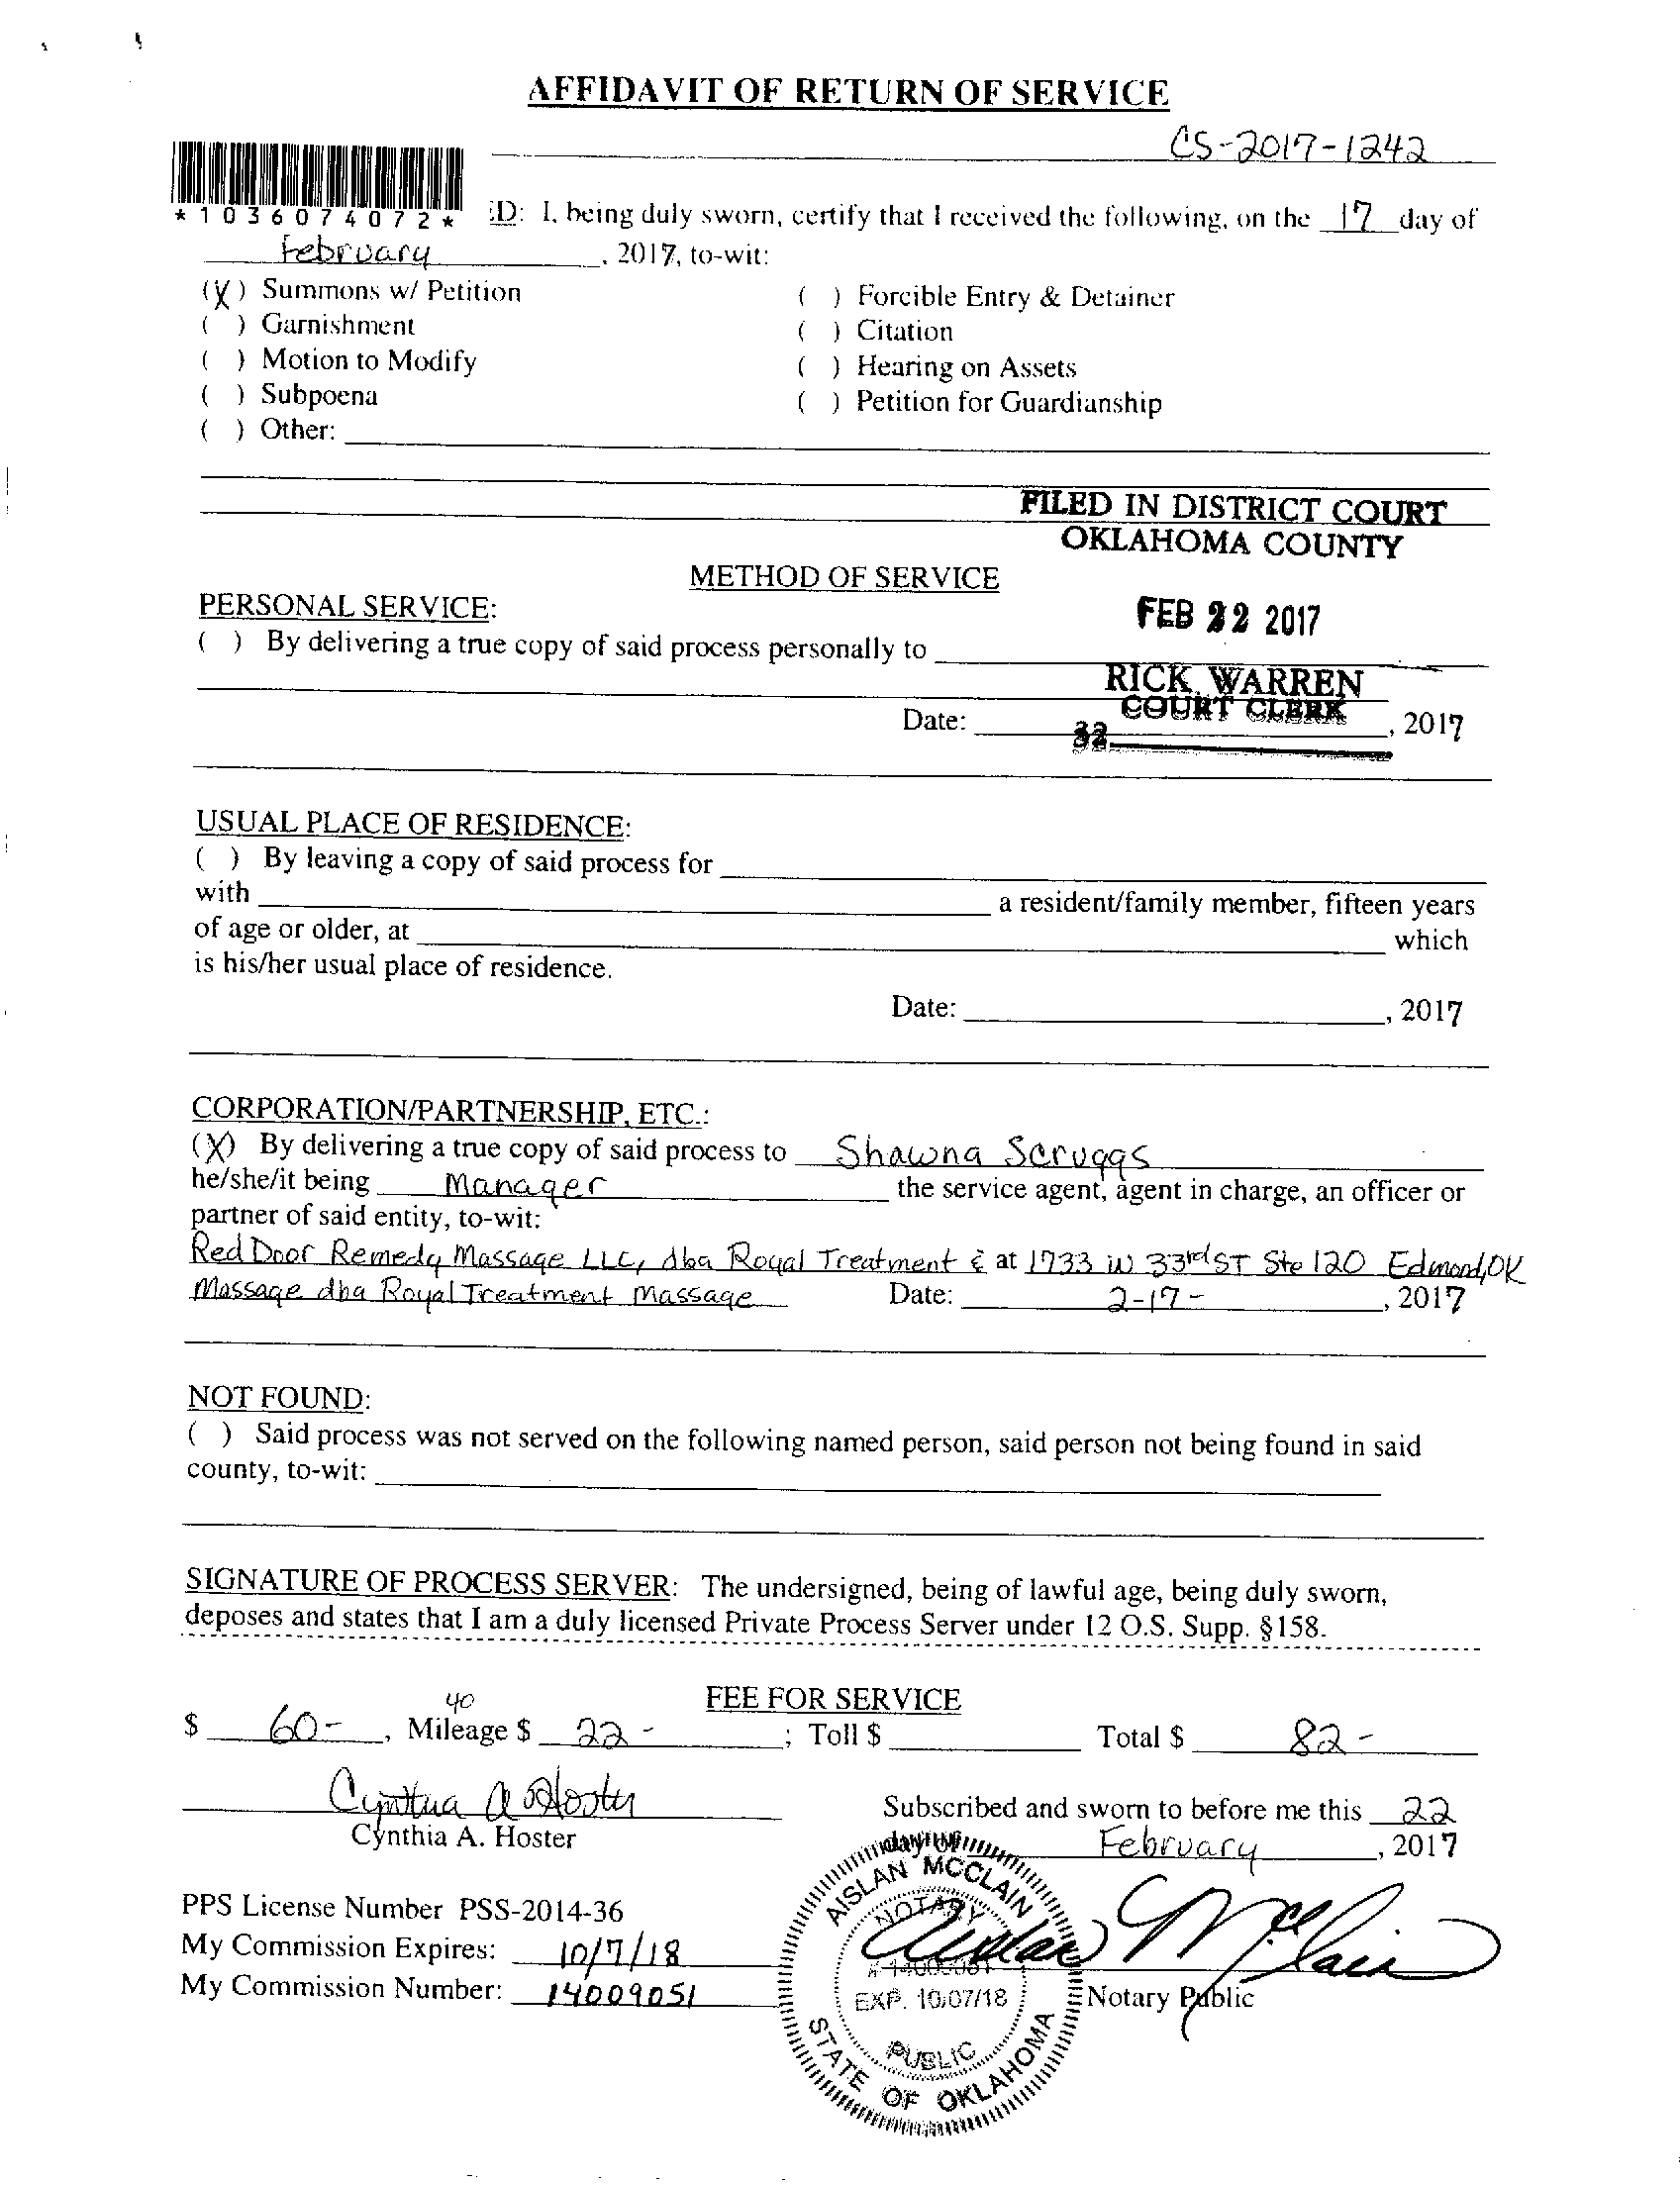 AFFIDAVIT OF RETURN OF SERVICE
CS-2017-1242
*1036074072* ED: I, being duly sworn, certify that I received the following, on the 17 day of
February, 2017, to-wit:
(X) Summons w/ Petition ( ) Forcible Entry & Detainer
( ) Garnishment ( ) Citation
( ) Motion to Modify ( ) Hearing on Assets
( ) Subpoena ( ) Petition for Guardianship
( ) Other:
FILED IN DISTRICT COURT
OKLAHOMA COUNTY
METHOD OF SERVICE
PERSONAL SERVICE:
FEB 22 2017
( ) By delivering a true copy of said process personally to
RICK WARREN
COURT CLERK
Date: , 2017
32
USUAL PLACE OF RESIDENCE:
( ) By leaving a copy of said process for
with a resident/family member, fifteen years
of age or older, at which
is his/her usual place of residence.
Date: , 2017
CORPORATION/PARTNERSHIP, ETC.:
(X) By delivering a true copy of said process to Shawna Scruggs
he/she/it being Manager the service agent, agent in charge, an officer or
partner of said entity, to-wit:
Red Door Remedy Massage LLC, dba Royal Treatment & at 1733 W 33rd ST Ste 120 Edmond, OK
Massage dba Royal Treatment Massage Date: 2-17-, 2017
NOT FOUND:
( ) Said process was not served on the following named person, said person not being found in said
county, to-wit:
SIGNATURE OF PROCESS SERVER: The undersigned, being of lawful age, being duly sworn,
deposes and states that I am a duly licensed Private Process Server under 12 O.S. Supp. §158.
FEE FOR SERVICE
40
$ 60-, Mileage $ 22-; Toll $ Total $ 82-
Cynthia A Hoster
Cynthia A. Hoster
Subscribed and sworn to before me this 22
day of February, 2017
PPS License Number PSS-2014-36
My Commission Expires: 10/7/18
My Commission Number: 14009051
Aislan McClain
Notary Public
AISLAN MCCLAIN
NOTARY
# 14009051
EXP. 10/07/18
PUBLIC
STATE OF OKLAHOMA